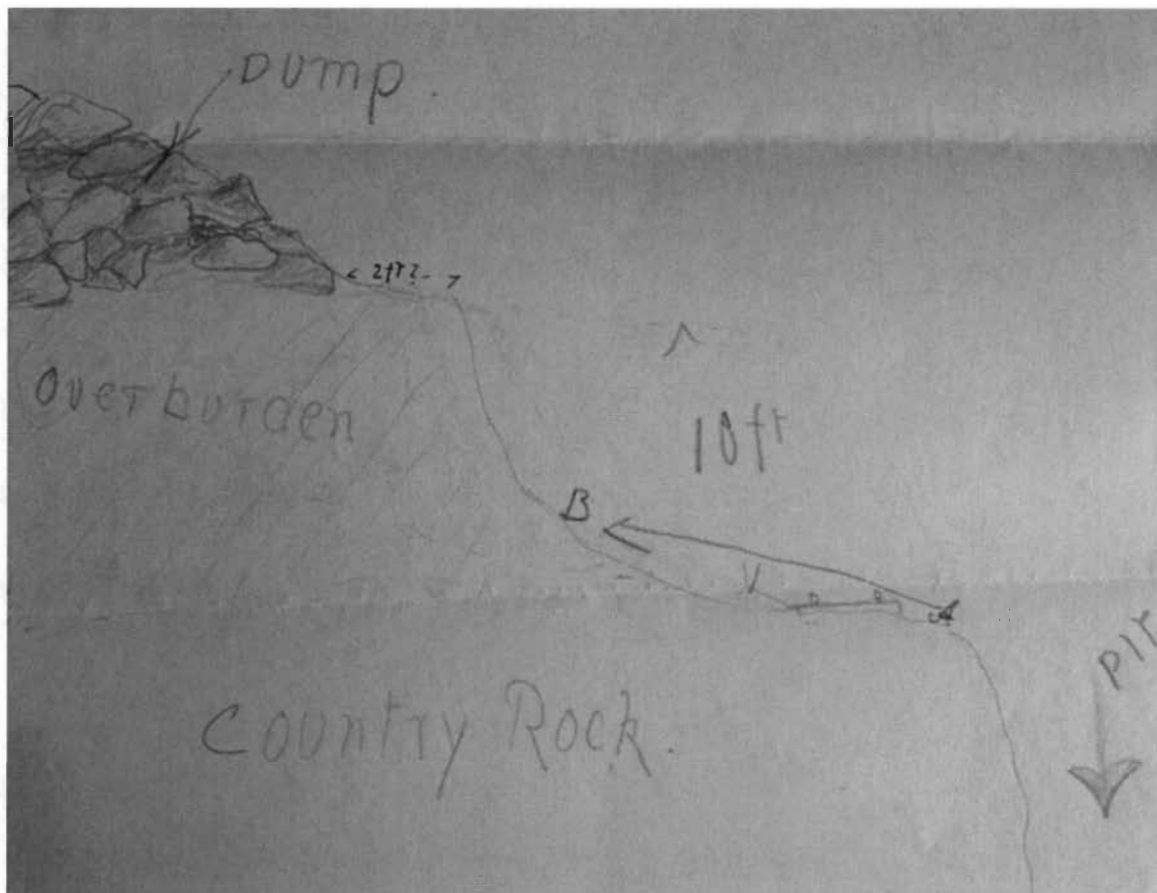 Dump.
2ft?
Overburden
10ft
B
A
Pit
Country Rock.